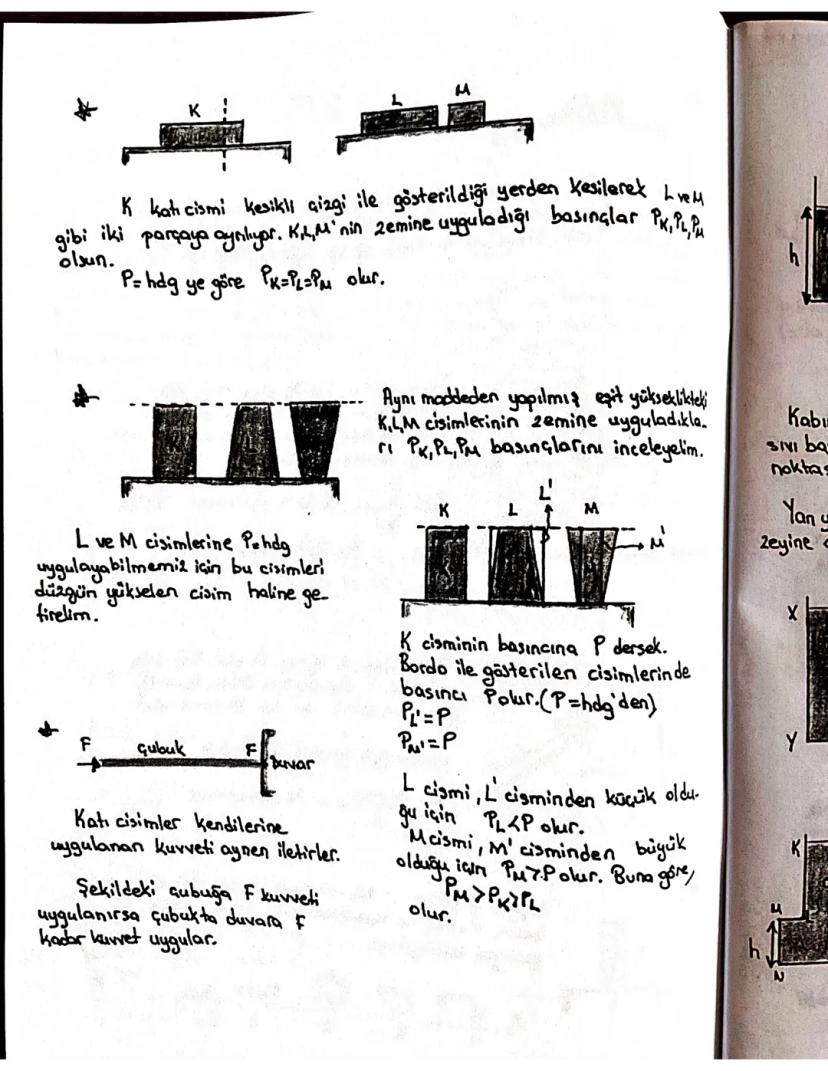 K
L
M
K katı cismi kesikli çizgi ile gösterildiği yerden kesilerek L ve M
gibi iki parçaya ayrılıyor. K,L,M'nin zemine uyguladığı basınçlar PK, PL, PM
olsun.
P= hdg ye göre PK=PL=PM olur.
Aynı maddeden yapılmış eşit yükseklikteki
K,L,M cisimlerinin zemine uyguladıkla-
rı PK, PL, PM basınçlarını inceleyelim.
L ve M cisimlerine P=hdg
uygulayabilmemiz için bu cisimleri
düzgün yükselen cisim haline ge-
tirelim.
L'
K L M
M'
K cisminin basıncına P dersek.
Bordo ile gösterilen cisimlerinde
basıncı P olur. (P=hdg'den)
PL'=P
PM'=P
L cismi, L' cisminden küçük oldu-
ğu için PL<P olur.
M cismi, M' cisminden büyük
olduğu için PM>P olur. Buna göre,
PM>PK>PL
olur.
F çubuk F duvar
Katı cisimler kendilerine
uygulanan kuvveti aynen iletirler.
Şekildeki çubuğa F kuvveti
uygulanırsa çubukta duvara F
kadar kuvvet uygular.
h
Kabı
sıvı ba
noktas
Yan y
zeyine
X
Y
K
M
h
N